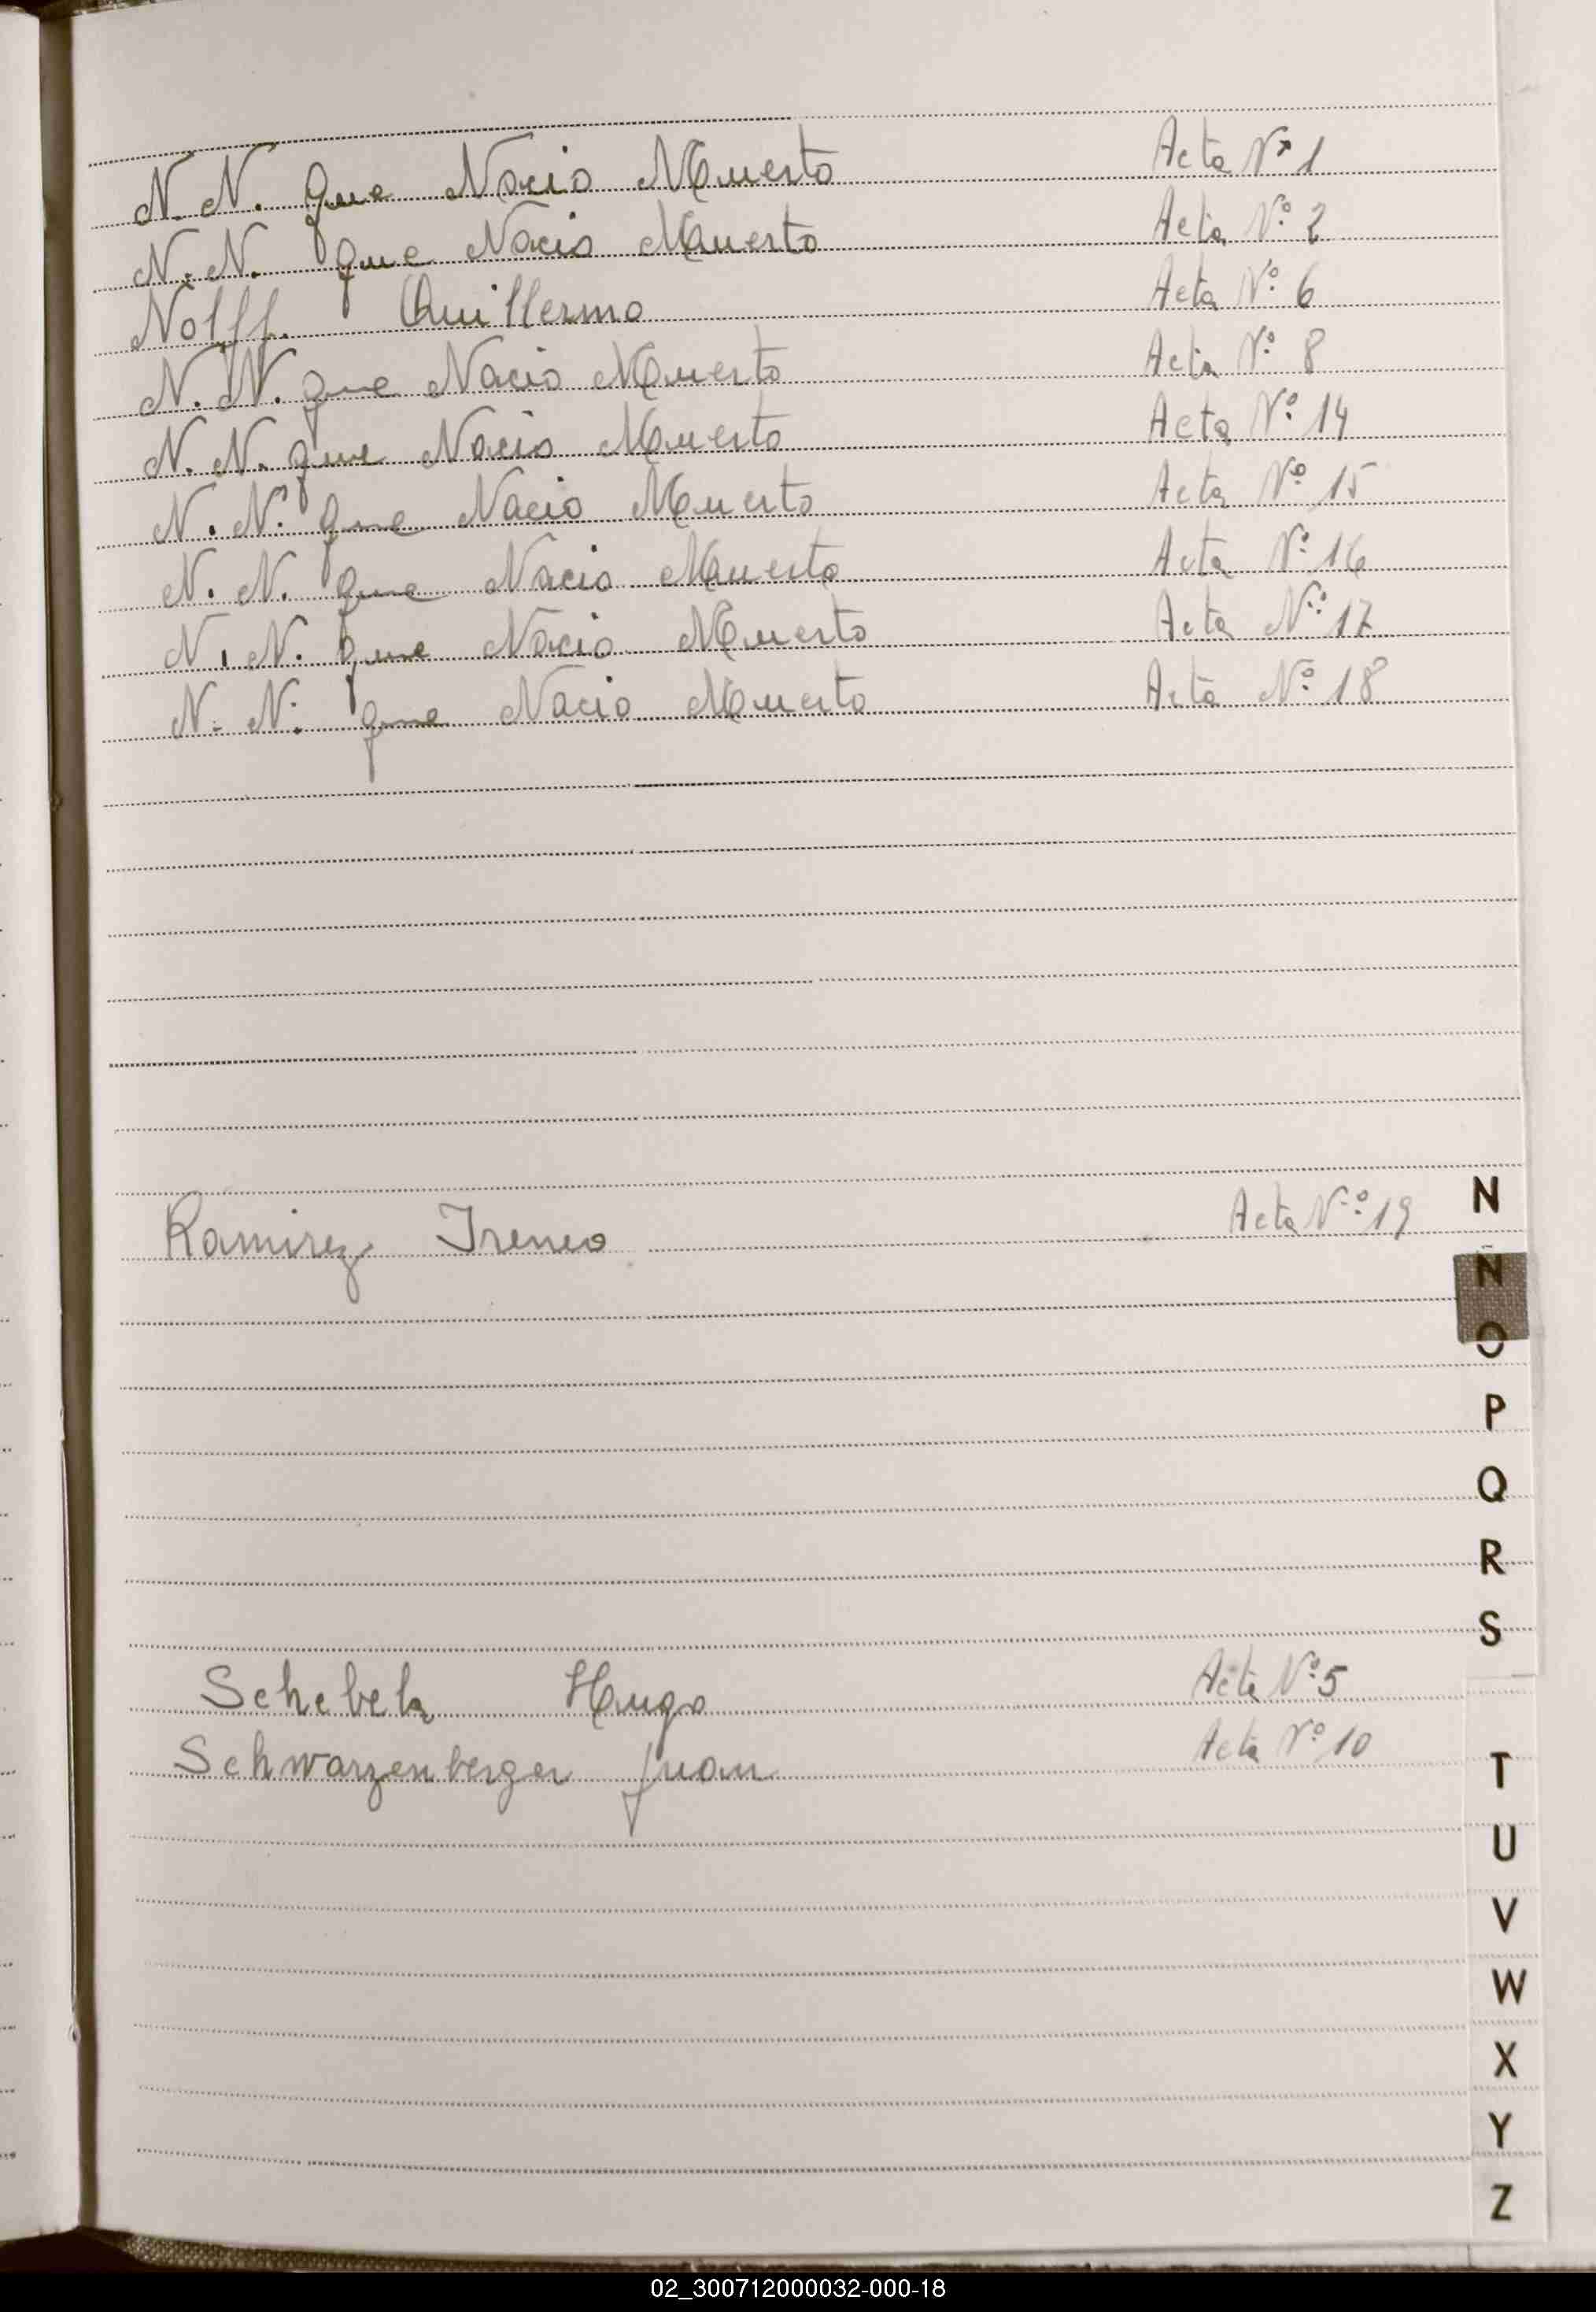 N. N. que Nacio Muerto Acta Nº 1
N. N. que Nacio Muerto Acta Nº 2
Nolff. Guillermo Acta Nº 6
N. N. que Nacio Muerto Acta Nº 8
N. N. que Nacio Muerto Acta Nº 14
N. N. que Nacio Muerto Acta Nº 15
N. N. que Nacio Muerto Acta Nº 16
N. N. que Nacio Muerto Acta Nº 17
N. N. que Nacio Muerto Acta Nº 18
Ramirez Ireneo Acta Nº 19
Schebela Hugo Acta Nº 5
Schwarzenberger Juan Acta Nº 10
N
Ñ
O
P
Q
R
S
T
U
V
W
X
Y
Z
02_300712000032-000-18